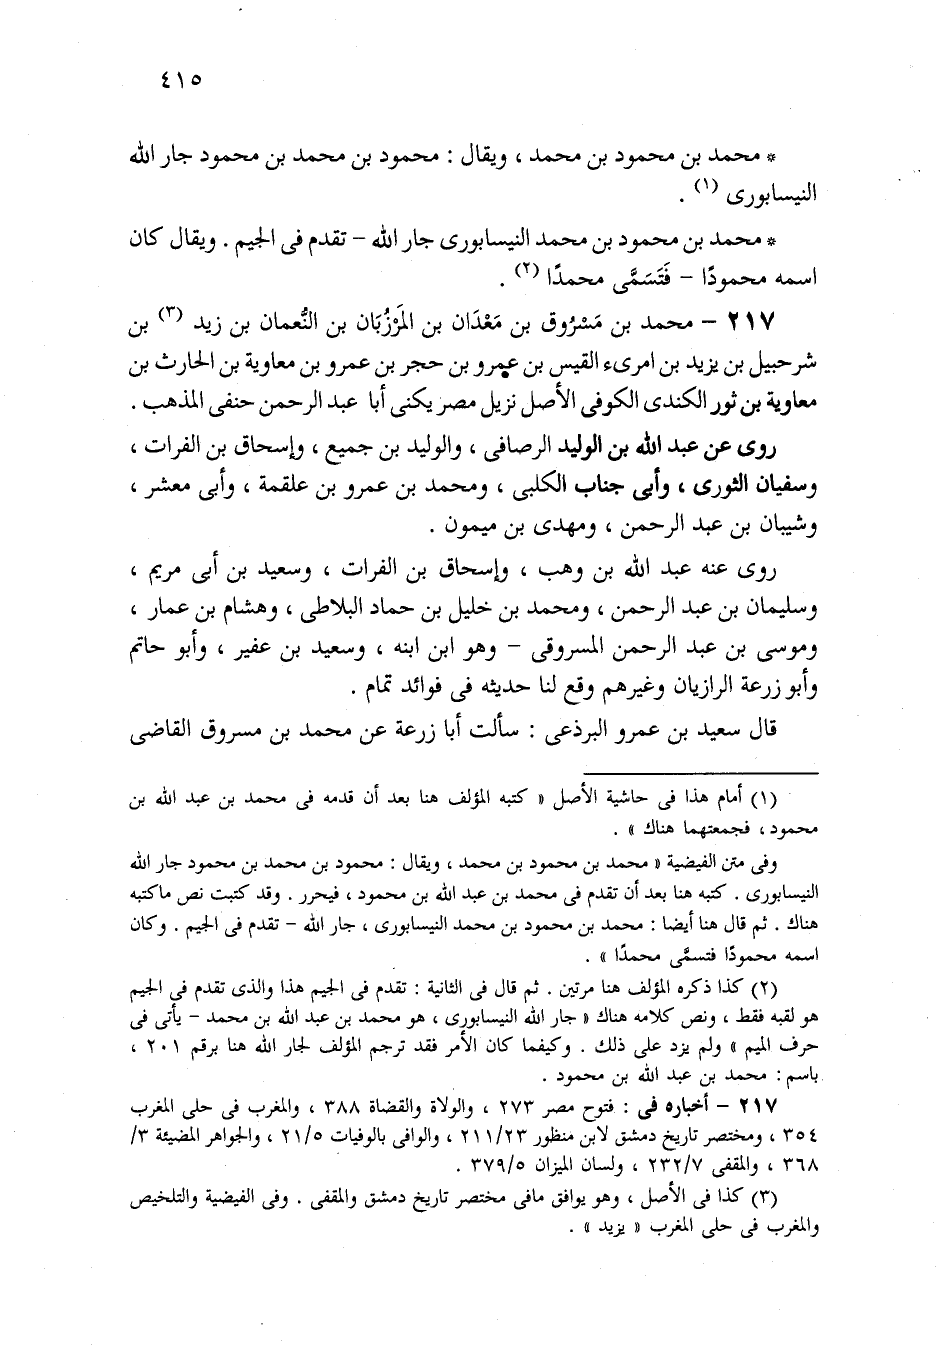 ٤١٥
* محمد بن محمود بن محمد ، ويقال : محمود بن محمد بن محمود جار الله
النيسابورى (١) .
* محمد بن محمود بن محمد النيسابورى جار الله – تقدم فى الجيم . ويقال كان
اسمه محمودًا – فَتَسَمَّى محمدًا (٢) .
٢١٧ – محمد بن مَسْرُوق بن مَعْدَان بن المَرْزُبَان بن النُّعمان بن زيد (٣) بن
شرحبيل بن يزيد بن امرىء القيس بن عمرو بن حجر بن عمرو بن معاوية بن الحارث بن
معاوية بن ثور الكندى الكوفى الأصل نزيل مصر يكنى أبا عبد الرحمن حنفى المذهب .
روى عن عبد الله بن الوليد الرصافى ، والوليد بن جميع ، وإسحاق بن الفرات ،
وسفيان الثورى ، وأبى جناب الكلبى ، ومحمد بن عمرو بن علقمة ، وأبى معشر ،
وشيبان بن عبد الرحمن ، ومهدى بن ميمون .
روى عنه عبد الله بن وهب ، وإسحاق بن الفرات ، وسعيد بن أبى مريم ،
وسليمان بن عبد الرحمن ، ومحمد بن خليل بن حماد البلاطى ، وهشام بن عمار ،
وموسى بن عبد الرحمن المسروقى – وهو ابن ابنه ، وسعيد بن عفير ، وأبو حاتم
وأبو زرعة الرازيان وغيرهم وقع لنا حديثه فى فوائد تمام .
قال سعيد بن عمرو البرذعى : سألت أبا زرعة عن محمد بن مسروق القاضى
(١) أمام هذا فى حاشية الأصل « كتبه المؤلف هنا بعد أن قدمه فى محمد بن عبد الله بن
محمود ، فجمعتهما هناك » .
وفى متن الفيضية « محمد بن محمود بن محمد ، ويقال : محمود بن محمد بن محمود جار الله
النيسابورى . كتبه هنا بعد أن تقدم فى محمد بن عبد الله بن محمود ، فيحرر . وقد كتبت نص ماكتبه
هناك . ثم قال هنا أيضا : محمد بن محمود بن محمد النيسابورى ، جار الله – تقدم فى الجيم . وكان
اسمه محمودًا فتسمَّى محمدًا » .
(٢) كذا ذكره المؤلف هنا مرتين . ثم قال فى الثانية : تقدم فى الجيم هذا والذى تقدم فى الجيم
هو لقبه فقط ، ونص كلامه هناك « جار الله النيسابورى ، هو محمد بن عبد الله بن محمد – يأتى فى
حرف الميم » ولم يزد على ذلك . وكيفما كان الأمر فقد ترجم المؤلف لجار الله هنا برقم ٢٠١ ،
باسم : محمد بن عبد الله بن محمود .
٢١٧ – أخباره فى : فتوح مصر ٢٧٣ ، والولاة والقضاة ٣٨٨ ، والمغرب فى حلى المغرب
٣٥٤ ، ومختصر تاريخ دمشق لابن منظور ٢١١/٢٣ ، والوافى بالوفيات ٢١/٥ ، والجواهر المضيئة ٣/
٣٦٨ ، والمقفى ٢٣٢/٧ ، ولسان الميزان ٣٧٩/٥ .
(٣) كذا فى الأصل ، وهو يوافق مافى مختصر تاريخ دمشق والمقفى . وفى الفيضية والتلخيص
والمغرب فى حلى المغرب « يزيد » .